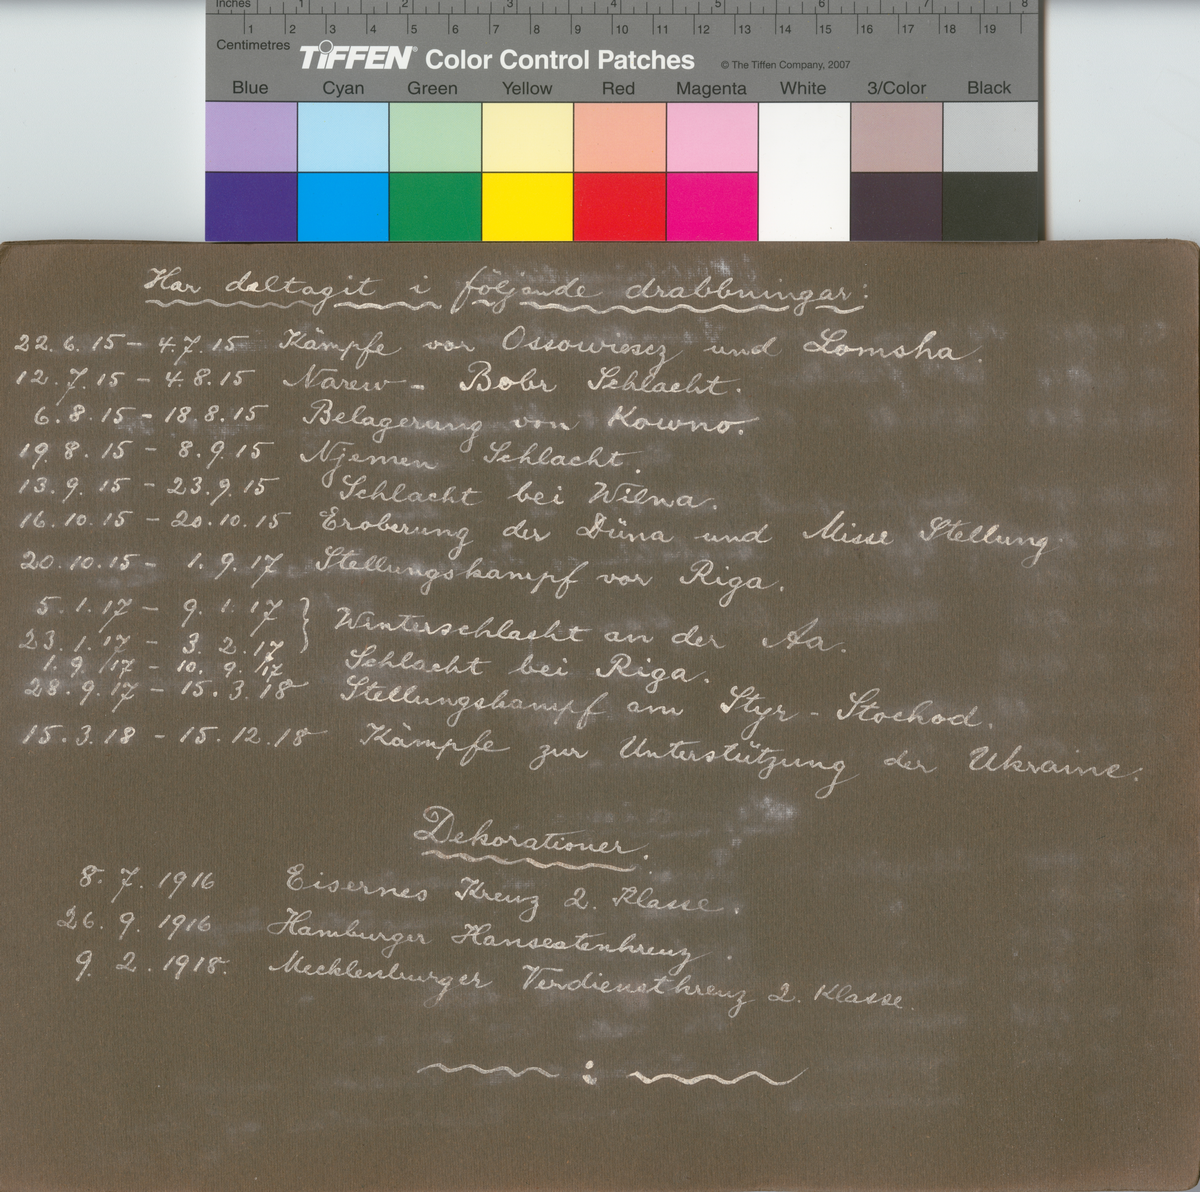 Inches 1 2 3 4 5 6 7 8
Centimetres 1 2 3 4 5 6 7 8 9 10 11 12 13 14 15 16 17 18 19
TIFFEN® Color Control Patches © The Tiffen Company, 2007
Blue Cyan Green Yellow Red Magenta White 3/Color Black
Har daltagit i följande drabbningar:
22.6.15 - 4.7.15 Kämpfe vor Ossowiesz und Lomsha.
12.7.15 - 4.8.15 Narew - Bobr Schlacht.
6.8.15 - 18.8.15 Belagerung von Kowno.
19.8.15 - 8.9.15 Njemen Schlacht.
13.9.15 - 23.9.15 Schlacht bei Wilna.
16.10.15 - 20.10.15 Eroberung der Düna und Misse Stellung
20.10.15 - 1.9.17 Stellungskampf vor Riga.
5.1.17 - 9.1.17 }
23.1.17 - 3.2.17 } Winterschlacht an der Aa.
1.9.17 - 10.9.17 Schlacht bei Riga.
28.9.17 - 15.3.18 Stellungskampf am Styr - Stochod.
15.3.18 - 15.12.18 Kämpfe zur Unterstützung der Ukraine.
Dekorationer.
8.7.1916 Eisernes Kreuz 2. Klasse.
26.9.1916 Hamburger Hanseatenkreuz.
9.2.1918. Mecklenburger Verdienstkreuz 2. Klasse.